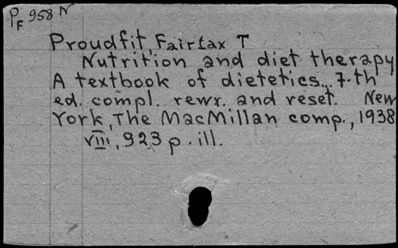 PF 958 N
Proudfit, Fairfax T
Nutrition and diet therapy
A textbook of dietetics... 7-th
ed. compl. rewr. and reset. New
York, The MacMillan comp., 1938
VIII, 923 p. ill.